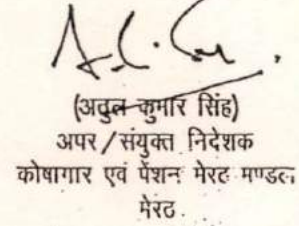 (अतुल कुमार सिंह)
अपर/संयुक्त निदेशक
कोषागार एवं पेंशन मेरठ मण्डल
मेरठ.